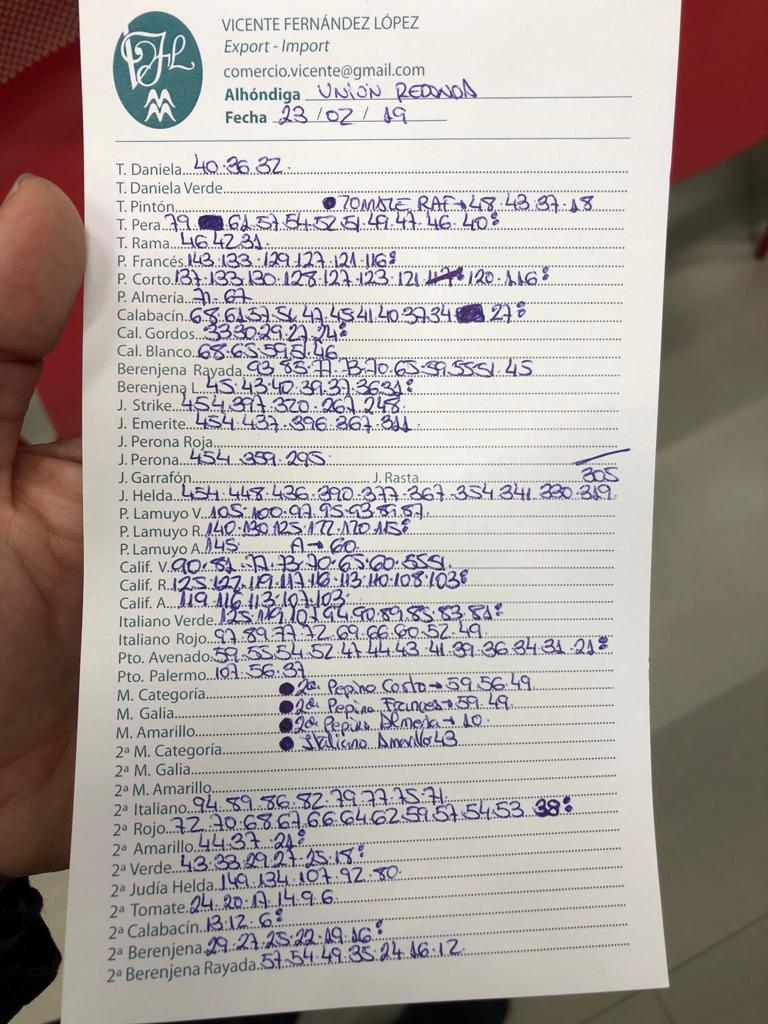 VICENTE FERNÁNDEZ LÓPEZ
Export - Import
comercio.vicente@gmail.com
Alhóndiga UNIÓN REDONDA
Fecha 23/02/19
T. Daniela 40.36.32.
T. Daniela Verde
T. Pintón TOMATE RAF→48.43.37.18
T. Pera 79 61.57.54.52.51.49.47.46.40
T. Rama 46 42.31.
P. Francés 143.133.129.127.121.116
P. Corto 137.133.130.128.127.123.121 120.116
P. Almería 71-67
Calabacín 68.61.57.51.47.45.41.40.37.34 27
Cal. Gordos 33.30.29.27.24
Cal. Blanco 68.65.59.51.46
Berenjena Rayada 93.85.77.73.70.65.59.55.51.45
Berenjena L. 45.43.40.39.37.36.31
J. Strike 454.397.320.267.248
J. Emerite 454.437.396.367.311
J. Perona Roja
J. Perona 454.359.295
J. Garrafón J. Rasta 305
J. Helda 454.448.436.390.377.367.354.341.330.319
P. Lamuyo V. 105.100.97.95.93.89.87
P. Lamuyo R. 140.130.125.122.120.115
P. Lamuyo A. 145 A→60
Calif. V. 90.81.77.73.70.65.60.55.51
Calif. R. 125.122.119.117.116.113.110.108.103
Calif. A. 119.116.113.107.103
Italiano Verde 125.119.107.94.90.89.85.83.81
Italiano Rojo 97.89.77.72.69.66.60.52.49
Pto. Avenado 59.55.54.52.47.44.43.41.39.36.34.31.21
Pto. Palermo 107.56.37
M. Categoría 2ª Pepino Corto→59.56.49
M. Galia 2ª Pepino Frances→59.49
M. Amarillo 2ª Pepino Almeria→10
2ª M. Categoría Italiano Amarillo 43
2ª M. Galia
2ª M. Amarillo
2ª Italiano 94.89.86.82.79.77.75.71
2ª Rojo 72.70.68.67.66.64.62.59.57.54.53 38
2ª Amarillo 44.37.21
2ª Verde 43.33.29.27.25.18
2ª Judía Helda 149.134.107.92.80
2ª Tomate 24.20.17.14.9.6
2ª Calabacín 13.12.6
2ª Berenjena 29.27.25.22.19.16
2ª Berenjena Rayada 57.54.49.35.24.16.12